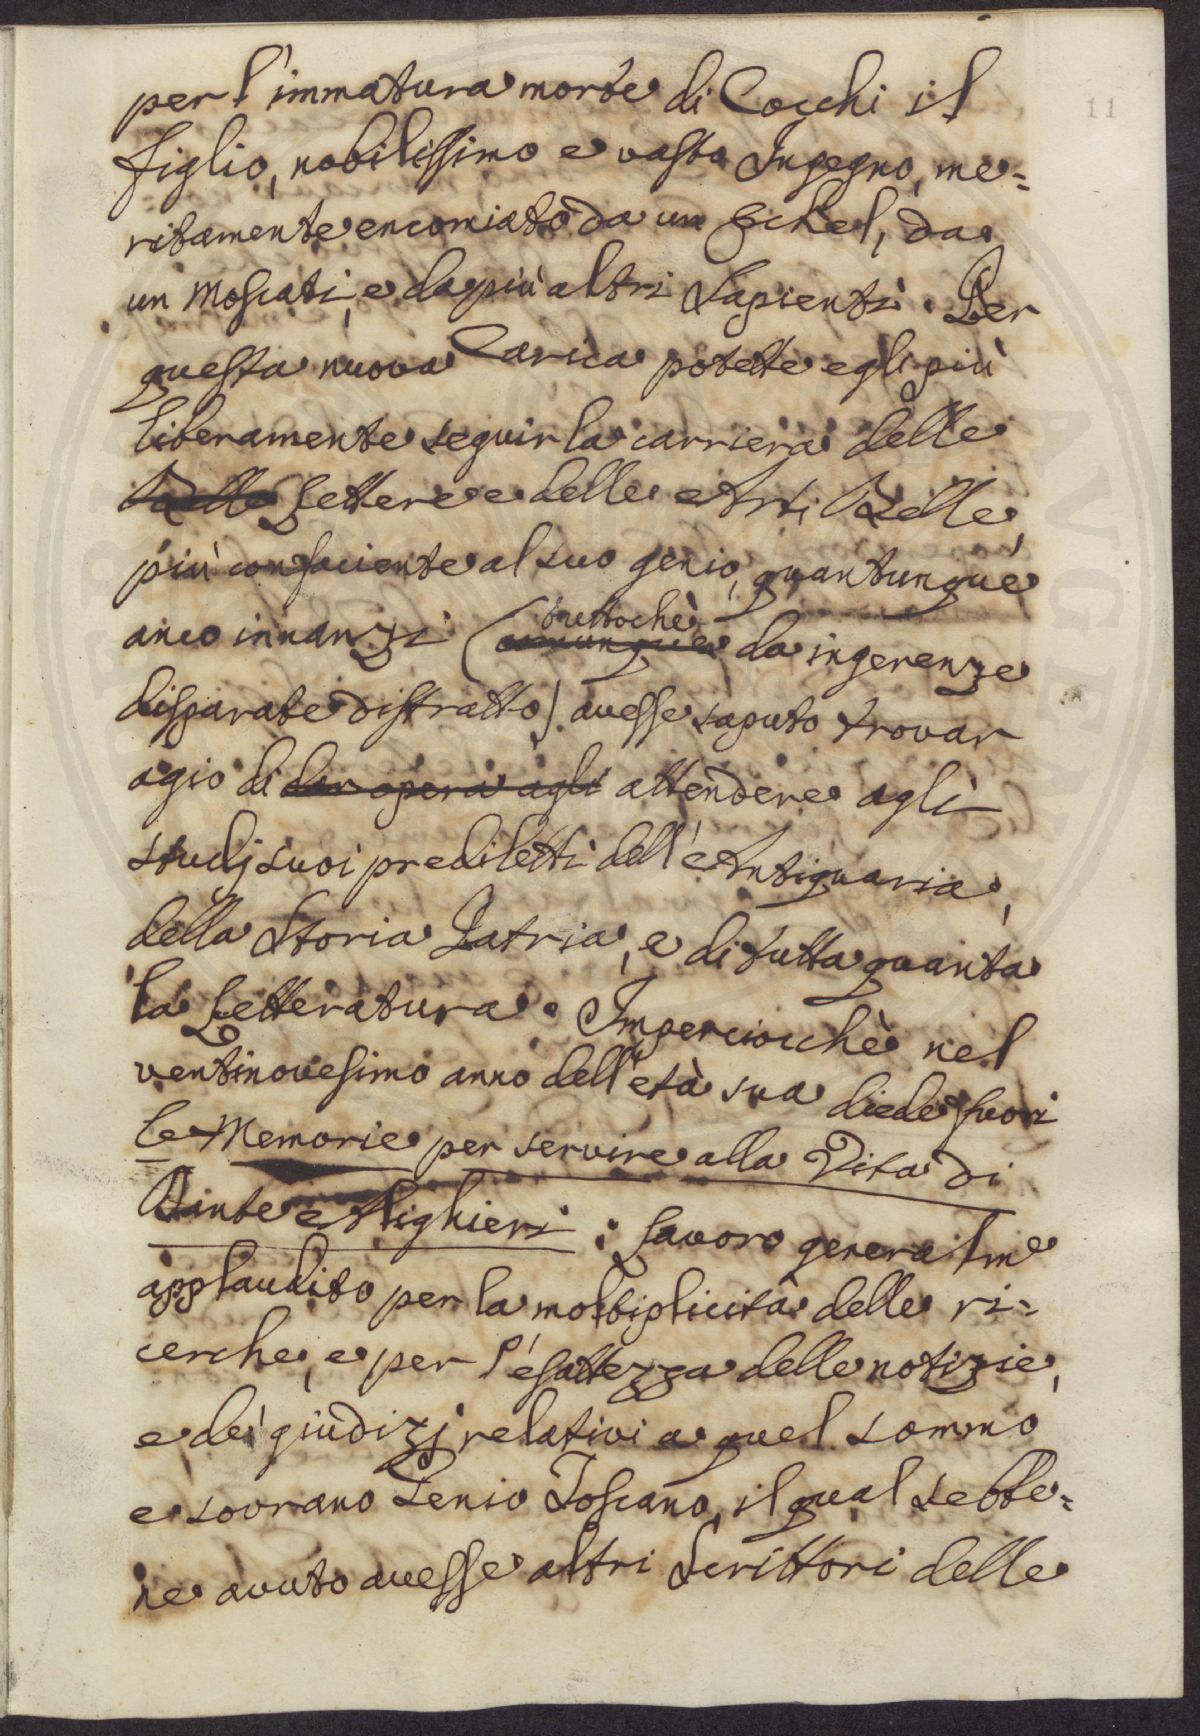 11
per l'immatura morte di Cocchi il
figlio, nobilissimo e vasto Ingegno, me=
ritamente encomiato da un Eckel, da
un Moscati, e da più altri Sapienti. Per
questa nuova Carica potette egli più
liberamente seguir la carriera delle
Belle Lettere e delle Arti Belle,
più confaciente al suo genio, quantunque
anco innanzi (comunque tuttochè da ingerenze
disparate distratto) avesse saputo trovar
agio di dar opera agli attendere agli
studj suoi prediletti dell'Antiquaria,
della Storia Patria, e di tutta quanta
la Letteratura. Imperciocchè nel
ventinovesimo anno dell'età sua diede fuori
le Memorie per servire alla Vita di
Dante Alighieri: Lavoro generalme
applaudito per la moltiplicità delle ri=
cerche, e per l'esattezza delle notizie,
e de' giudizj relativi a quel sommo
e sovrano Genio Toscano, il qual sebbe=
ne avuto avesse altri Scrittori delle